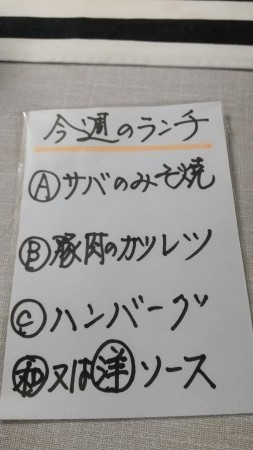 今週のランチ
Ⓐサバのみそ焼
Ⓑ豚肉のカツレツ
Ⓒハンバーグ
㊓又は㊋ソース